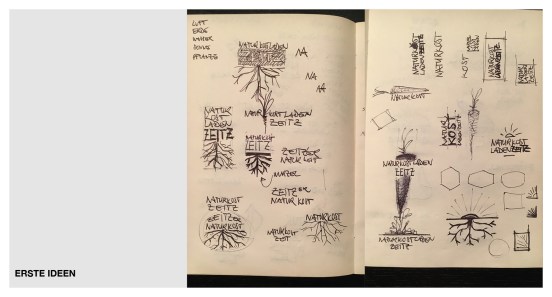 LUFT
ERDE
WASSER
SONNE
PFLANZE
NATURKOSTLADEN
NA
NA
NA
NATURKOSTLADEN
ZEITZ
NATUR
KOST
LADEN
ZEITZ
NATURKOST
ZEITZ
ZEITZER
NATURKOST
WURZEL
ZEITZER
NATURKOST
NATURKOST
ZEITZ
ZEITZER
NATURKOST
NATURKOST
ZEITZ
NATURKOST
NATURKOST
LADEN ZEITZ
NATURKOST
KOST
NATURKOST
LADEN ZEITZ
NATURKOST
NATUR
KOST
NATURKOST
LADEN ZEITZ
NATURKOSTLADEN
ZEITZ
NATURKOSTLADEN
ZEITZ
ERSTE IDEEN